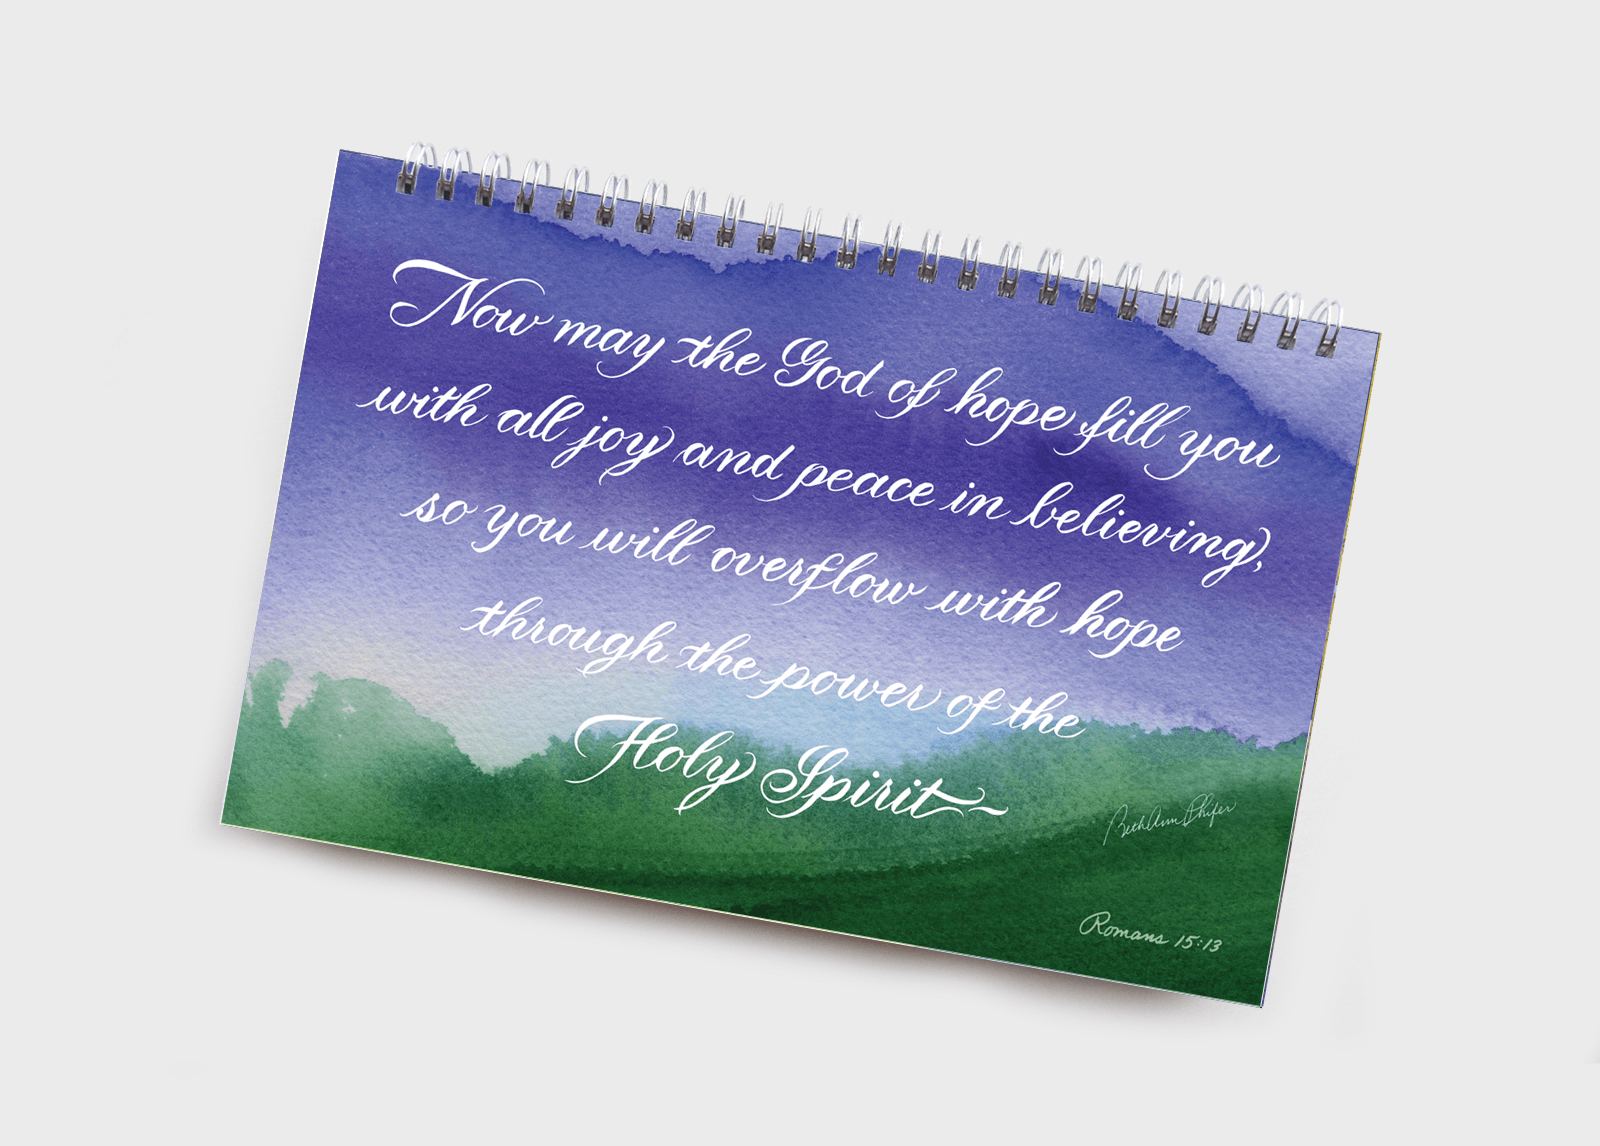 Now may the God of hope fill you
with all joy and peace in believing,
so you will overflow with hope
through the power of the
Holy Spirit
BethAnn Phifer
Romans 15:13